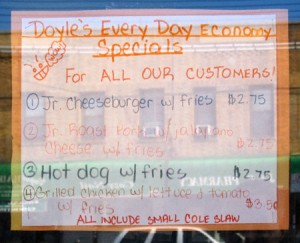 Doyle's Every Day Economy
Specials
For ALL OUR CUSTOMERS!
① Jr. Cheeseburger w/ fries $2.75
② Jr. Roast w/
Cheese w/ fries
③ Hot dog w/ fries $2.75
④ Grilled chicken w/ lettuce & tomato
w/ fries $3.50
ALL INCLUDE SMALL COLE SLAW